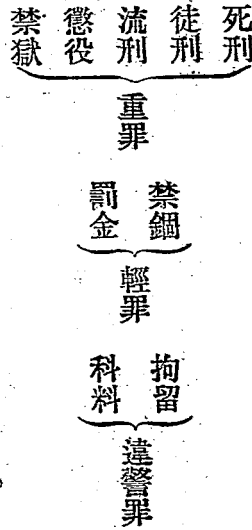 死刑
徒刑
流刑
懲役
禁獄
重罪
禁錮
罰金
輕罪
拘留
科料
違警罪